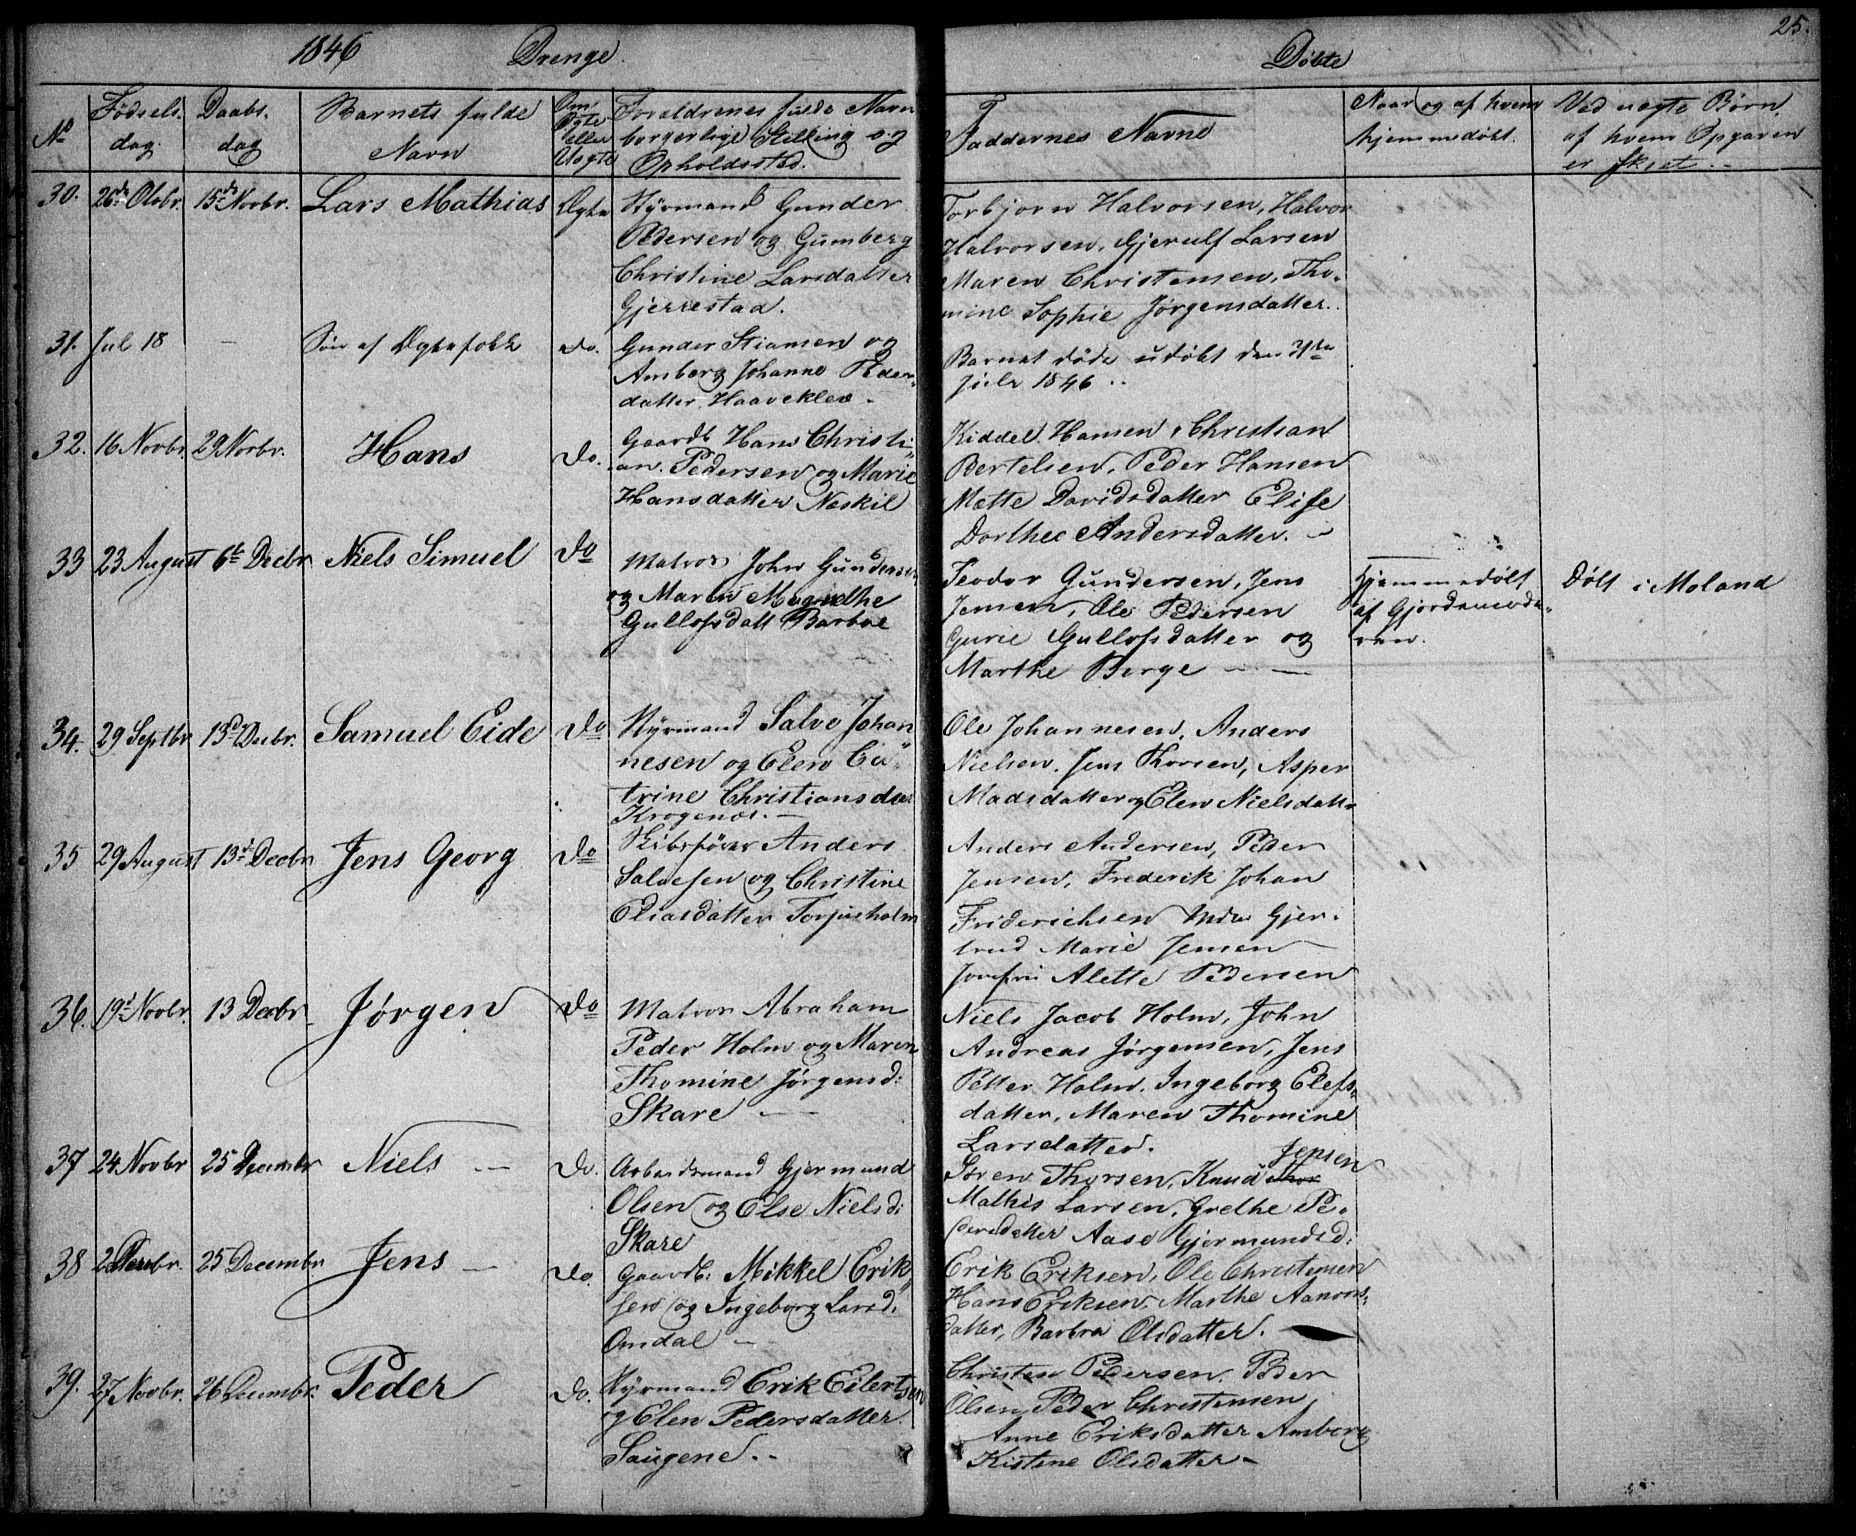 1846 Drenge. Døbte 25.
No Fødsels- dag. Daabs- dag Barnets fulde Navn Om Ægte eller Uægte Forældrenes fulde Navn borgerlige Stilling og Opholdssted. Faddernes Navne Naar og af hvem hjemmedøbt. Ved uægte Børn, af hvem Opgaven er skeet.
30. 26de Octbr. 15de Novbr. Lars Mathias Ægte Styrmand Gunder
Pedersen og Gumberg
Christine Larsdatter
Gjerrestad.
Torbjørn Halvorsen, Halvor
Halvorsen, Gjerulf Larsen
Maren Christensen, Tho-
mine Sophie Jørgensdatter.
31. Jul 18 — Søn af Ægtefolk do. Gunder Stiansen og
Amberg Johanne Peder-
datter Haavekleve.
Barnet døde udøbt den 31te
Juli 1846.
32. 16 Novbr. 29 Novbr. Hans do. Gaardb. Hans Christi-
an Pedersen og Marie
Hansdatter Neskil
Kiddel Hansen, Christian
Bertelsen, Peder Hansen
Mette Davidsdatter Elise
Dorthee Andersdatter.
33 23 August 6te Decbr Niels Simuel do Matros John Gundersen
og Maren Magrethe
Gullofsdatt Barboe
Teodor Gundersen, Jens
Jensen, Ole Pedersen
Gurie Gullofsdatter og
Marthe Berge —
Hjemmedøbt
af Gjordemode-
ren.
Døbt i Moland
34. 29 Septbr 13de Decbr. Samuel Eide do Styrmand Salve Johan
nesen og Elen Ca-
trine Christiansdat
Krogenes.
Ole Johannesen, Anders
Nielsen. Jens Thorsen, Asper
Madsdatter og Elen Nielsdatt
35 29 August 13de Decbr Jens Georg do Skibsfører Anders
Salvesen og Christine
Eliasdatter Torjusholm
Anders Andersen, Peder
Jensen, Frederik Johan
Friderichsen Mdm Gjer-
trud Marie Jensen
Jomfru Alette Pedersen
36. 19de Novbr. 13 Decbr Jørgen do Matros Abraham
Peder Holm og Maren
Thomine Jørgensd:
Skare —
Niels Jacob Holm, John
Andreas Jørgensen, Jens
Petter Holm. Ingeborg Elefs-
datter, Maren Thomine
Larsdatter.
37 24 Novbr 25 Decembr Niels — do. Arbeidsmand Gjermund
Olsen og Else Nielsd:
Skare
Jensen
Søren Thorsen, Knud
Mathis Larsen, Grethe Pe-
dersdatter Aase Gjermundsd:
38 2 Decbr. 25 Decembr Jens — do. Gaardb: Mikkel Erik
sen og Ingeborg Larsd:
Omdal —
Erik Eriksen, Ole Christensen
Hans Eriksen. Marthe Aanons-
datter, Barbra Olsdatter.
39. 27 Novbr. 26 Decembr. Peder do. Styrmand Erik Eilertsen
og Elen Pedersdatter
Saugene.
Christen Pedersen. Peder
Olsen Peder Christensen
Anne Eriksdatter Amberg
Kistine Olsdatter